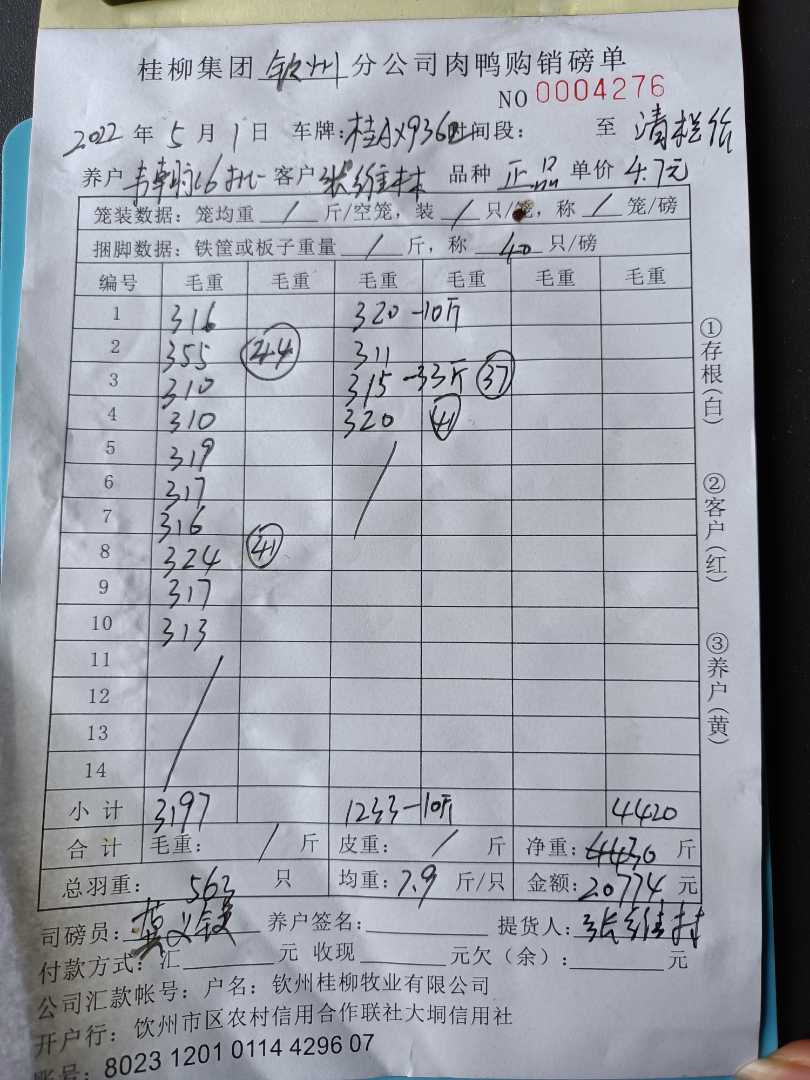 桂柳集团 钦州 分公司肉鸭购销磅单
NO 0004276
2022 年 5 月 1 日 车牌: 桂AX936 时间段: 至 清栏给
养户 客户 张维林 品种 正品 单价 4.7元
笼装数据: 笼均重 / 斤/空笼, 装 / 只/笼, 称 / 笼/磅
捆脚数据: 铁筐或板子重量 / 斤, 称 40 只/磅
编号 毛重 毛重 毛重 毛重 毛重 毛重
1 316 320 -10斤
2 355 44 311
3 310 315 -33斤 37
4 310 320 41
5 319 /
6 317
7 316
8 324 41
9 317
10 313
11 /
12
13
14
小计 3197 1233 -10斤 4420
合计 毛重: / 斤 皮重: / 斤 净重: 4430 斤
总羽重: 563 只 均重: 7.9 斤/只 金额: 20774 元
司磅员: 养户签名: 提货人: 张维林
付款方式: 汇 元 收现 元欠(余): 元
公司汇款帐号: 户名: 钦州桂柳牧业有限公司
开户行: 钦州市区农村信用合作联社大垌信用社
账号: 8023 1201 0114 4296 07
①存根(白)
②客户(红)
③养户(黄)